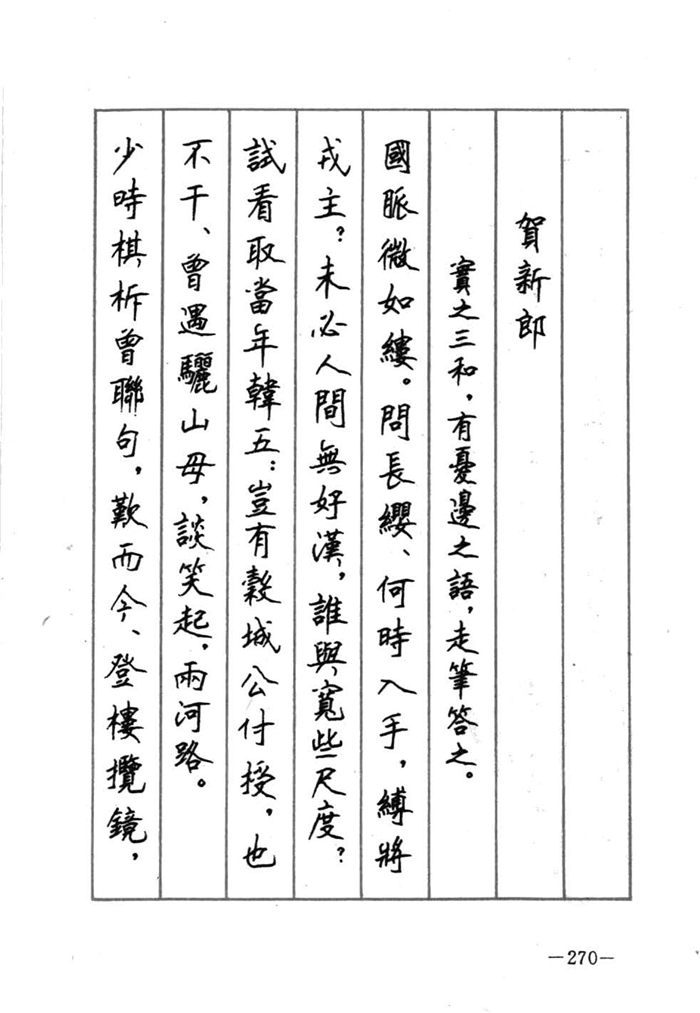 賀新郎
實之三和，有憂邊之語，走筆答之。
國脈微如縷。問長纓、何時入手，縛將
戎主？未必人間無好漢，誰與寬些尺度？
試看取當年韓五：豈有穀城公付授，也
不干、曾遇驪山母，談笑起，兩河路。
少時棋柝曾聯句，歎而今、登樓攬鏡，
—270—